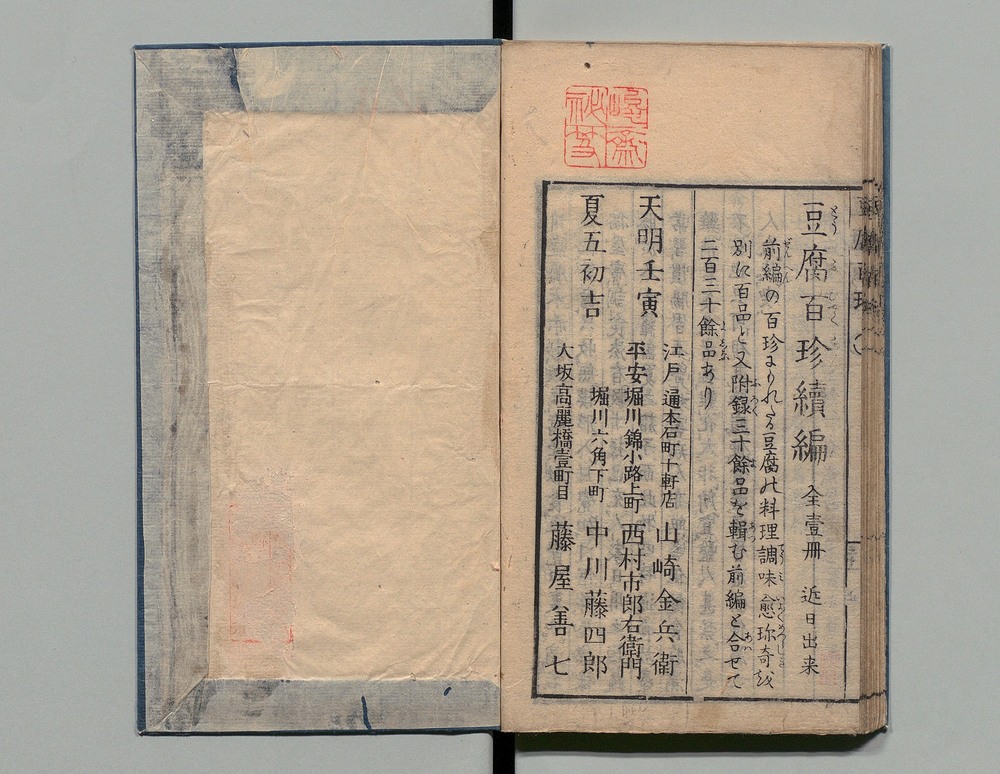 豆腐百珍續編 全壹冊 近日出来
前編の百珍にもれたる豆腐の料理調味愈珎奇
別に百品と又附録三十餘品を輯む前編と合せて
二百三十餘品あり
天明壬寅
夏五初吉
江戸通本石町十軒店 山崎金兵衛
平安堀川錦小路上町 西村市郎右衛門
堀川六角下町 中川藤四郎
大坂高麗橋壹町目 藤屋善七